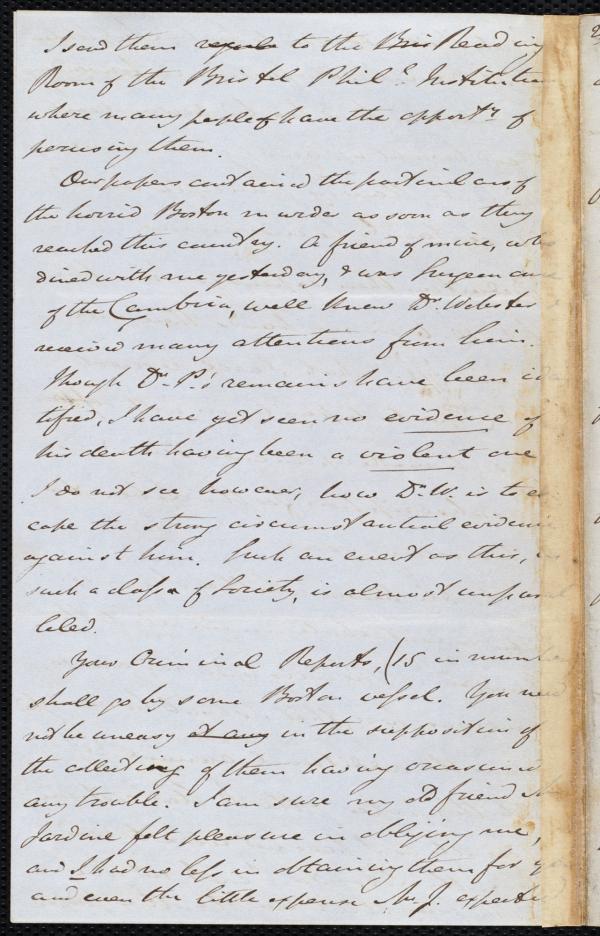 I send them to the Reading
Room of the Bristol Phil.l Institution
where many people have the opport.y of
perusing them.
Our papers contained the particulars of
the horrid Boston murder as soon as they
reached this country. A friend of mine, who
dined with me yesterday, & was Surgeon
of the Cambria, well knew Dr. Webster
received many attentions from him.
Though Dr. P.'s remains have been iden
tified, I have yet seen no evidence of
his death having been a violent one
I do not see however, how Dr. W. is to es
cape the strong circumstantial evidence
against him. Such an event as this, in
such a class of Society, is almost unparal
leled.
Your Criminal Reports, (15 in number
shall go by some Boston vessel. You need
not be uneasy at any in the supposition of
the collecting of them having occasioned
any trouble. I am sure my old friend Mr
Jardine felt pleasure in obliging me,
and I had no less in obtaining them for y
and even the little expense Mr. J. expected